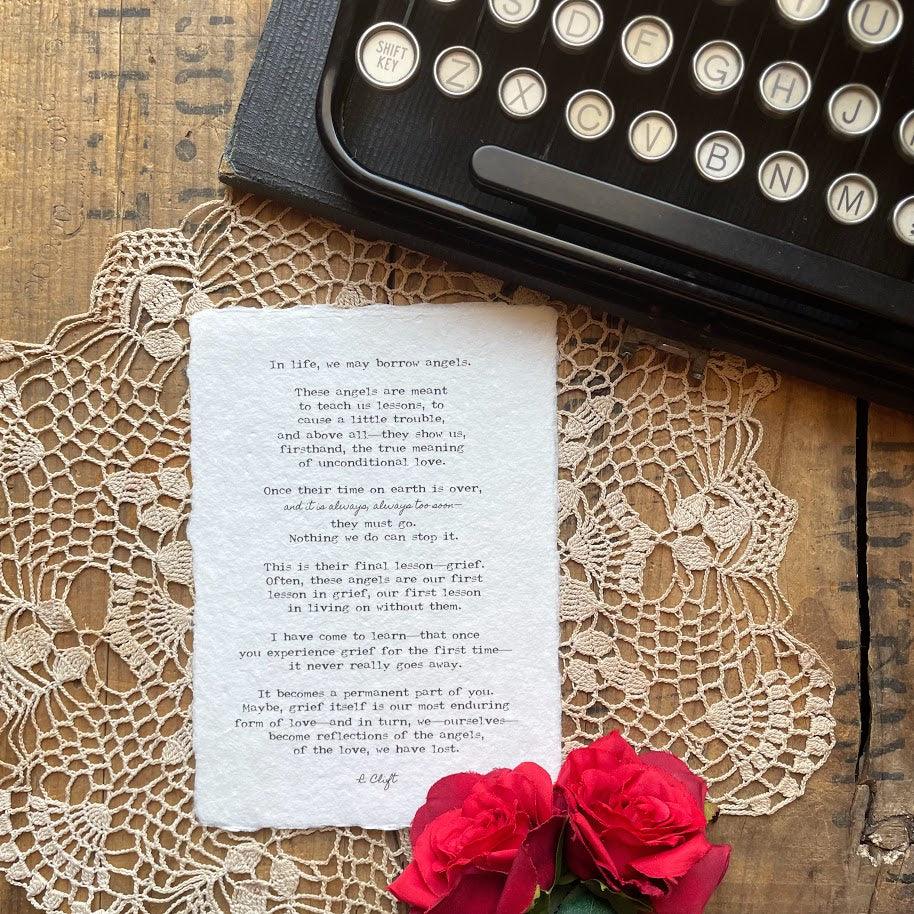 S D F U
SHIFT
KEY
Z X C V B N M
G H J
In life, we may borrow angels.
These angels are meant
to teach us lessons, to
cause a little trouble,
and above all—they show us,
firsthand, the true meaning
of unconditional love.
Once their time on earth is over,
and it is always, always too soon—
they must go.
Nothing we do can stop it.
This is their final lesson—grief.
Often, these angels are our first
lesson in grief, our first lesson
in living on without them.
I have come to learn—that once
you experience grief for the first time—
it never really goes away.
It becomes a permanent part of you.
Maybe, grief itself is our most enduring
form of love—and in turn, we—ourselves—
become reflections of the angels,
of the love, we have lost.
R. Clift